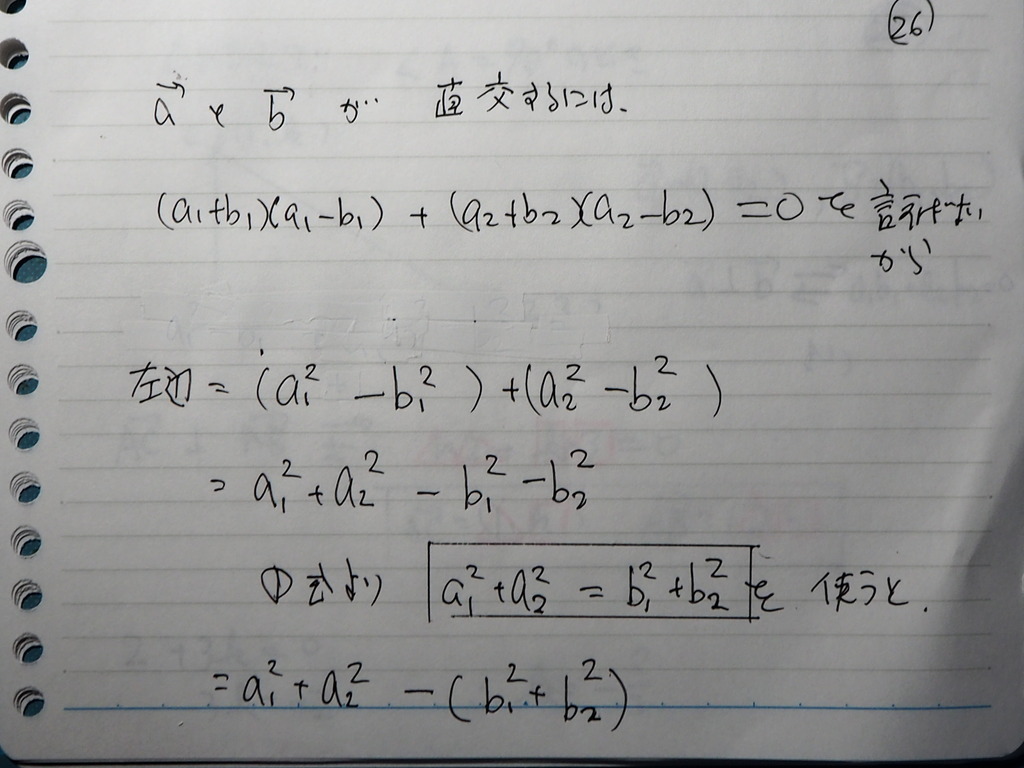 (26)
a⃗ と b⃗ が 直交するには、
(a₁+b₁)(a₁-b₁) + (a₂+b₂)(a₂-b₂) = 0 を 言えればいい
から
左辺 = (a₁² - b₁²) + (a₂² - b₂²)
= a₁² + a₂² - b₁² - b₂²
①式より a₁² + a₂² = b₁² + b₂² を 使うと、
= a₁² + a₂² - (b₁² + b₂²)